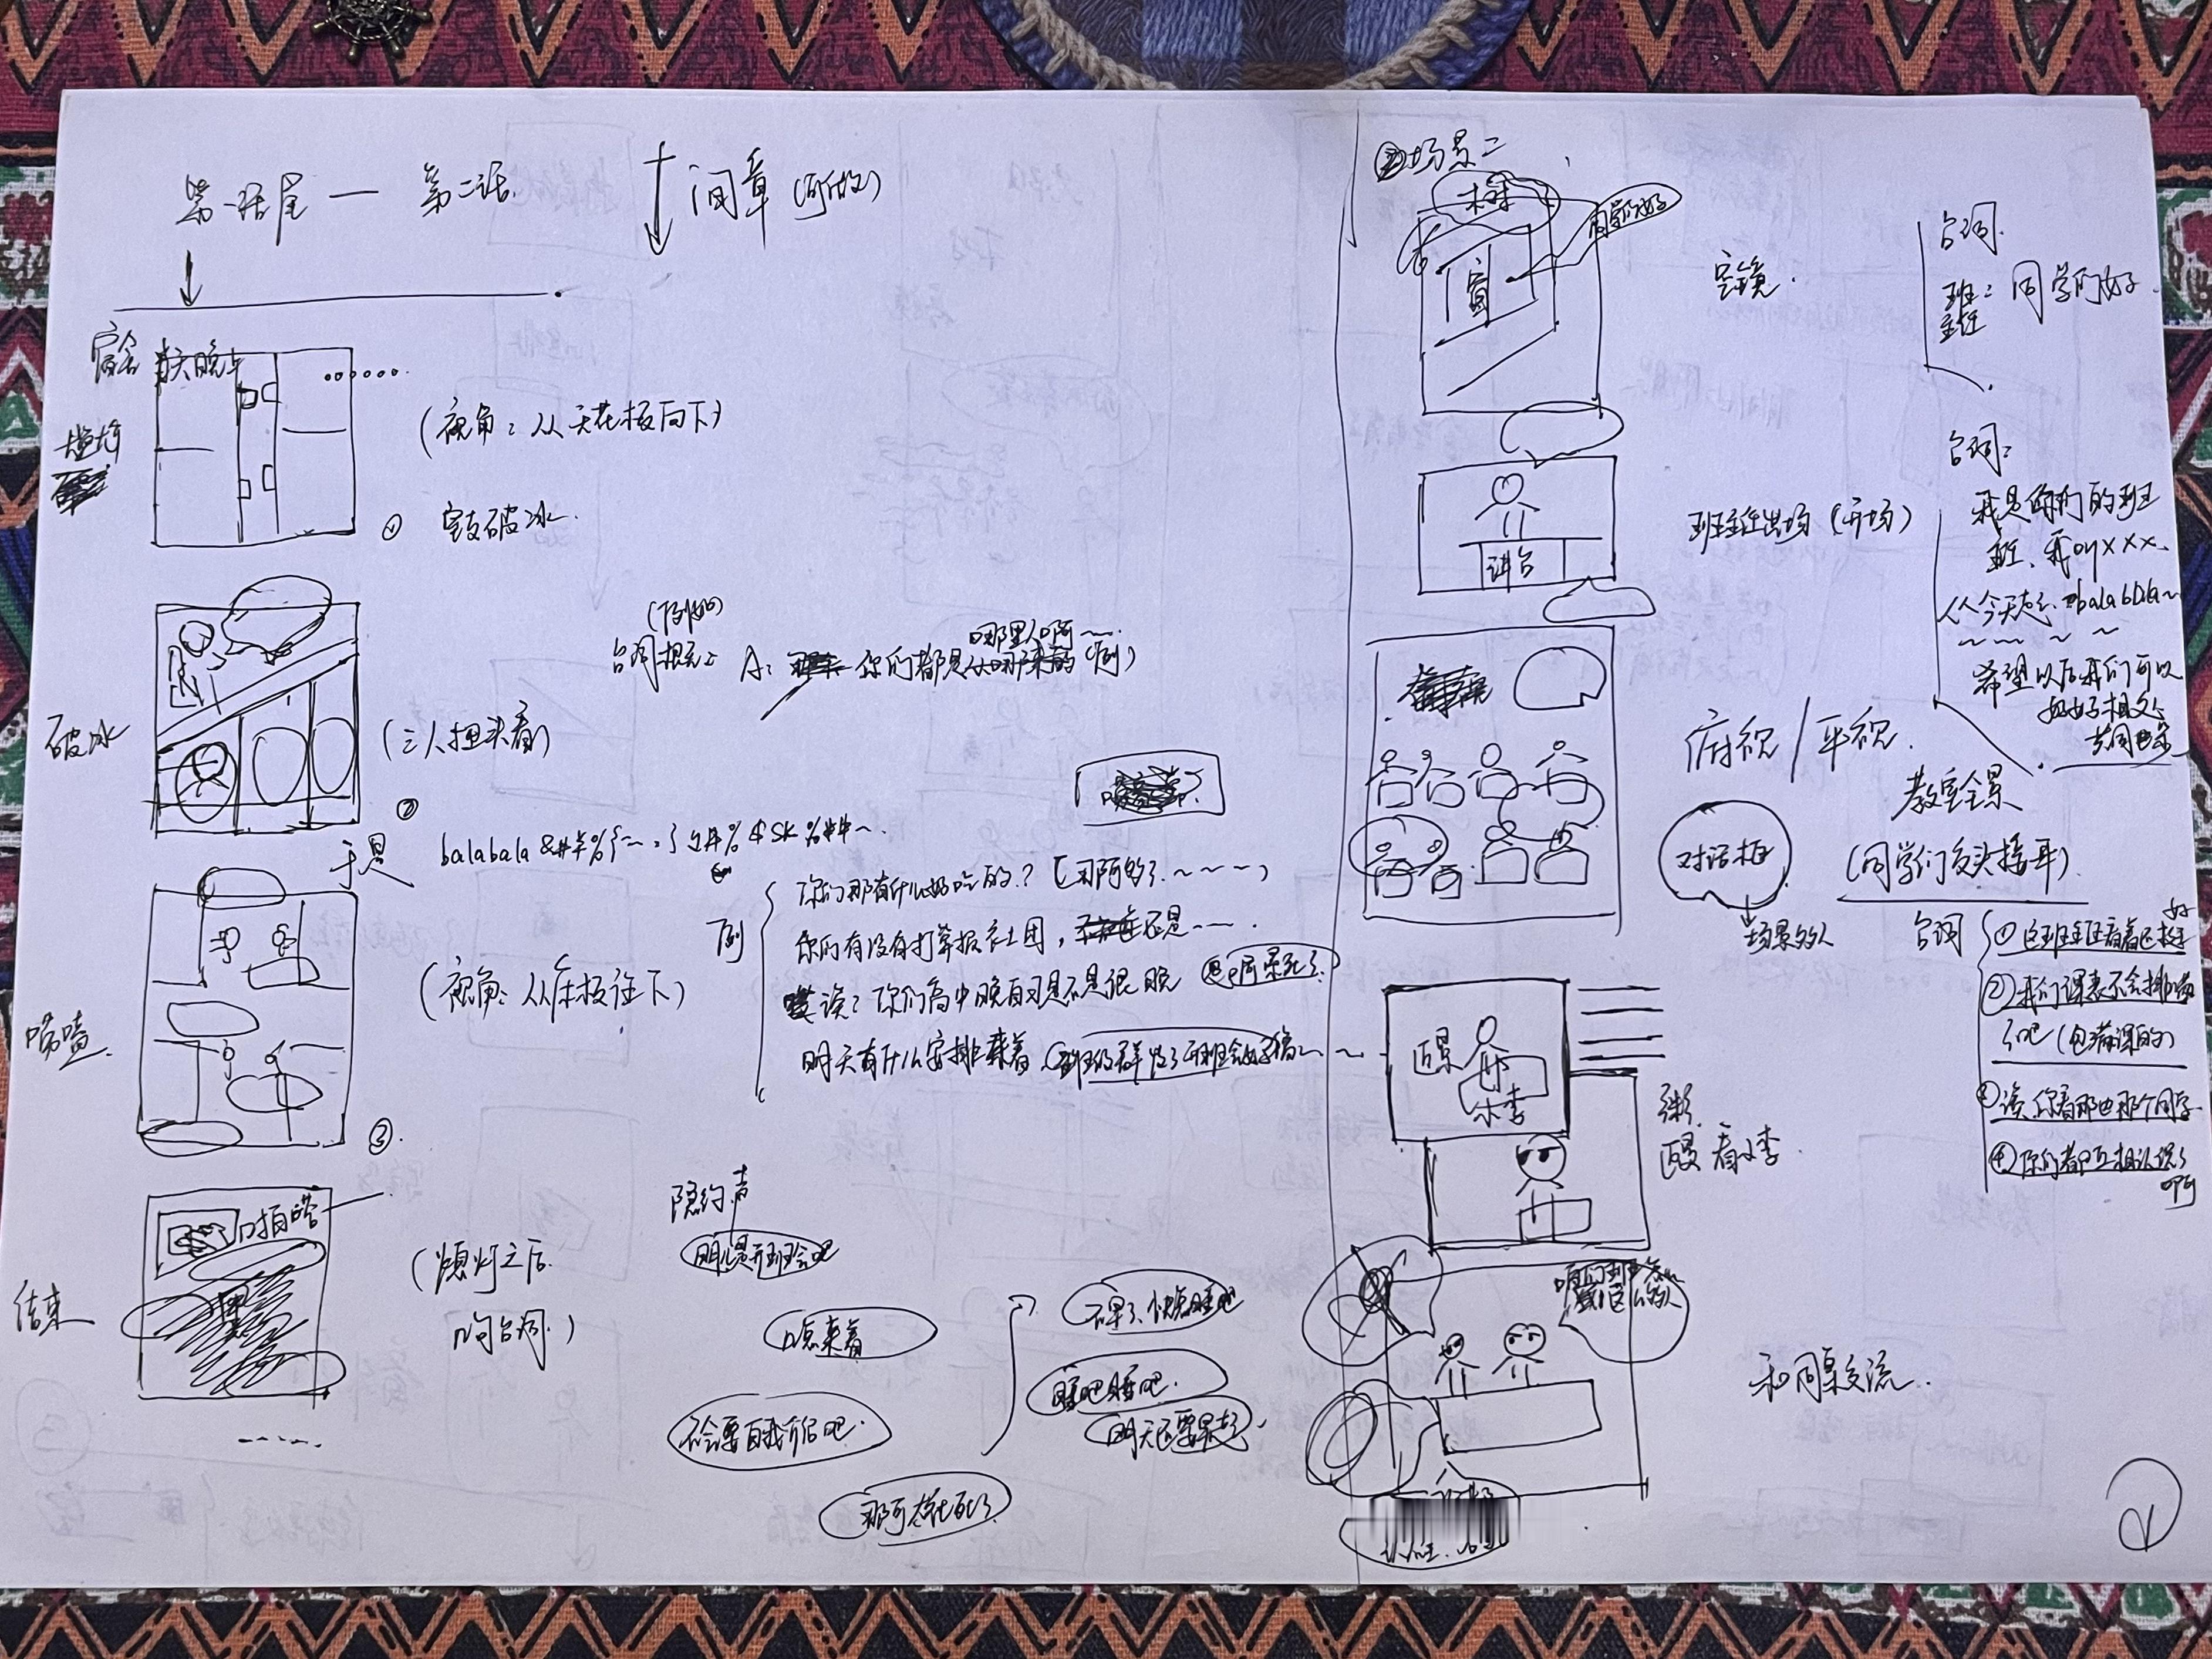 第一话尾 — 第二话
间章(可做)
宿舍
当天晚上
......
尴尬
(视角：从天花板向下)
①
室友破冰
(例如)
台词提示：A：你们都是哪里人啊~~ (例)
破冰
(三人扭头看)
②
于是
balabala
唠嗑
(视角：从床板往下)
③
例
你们那有什么好吃的？
你们有没有打算报社团，还是~~.
诶：你们高中晚自习是不是很晚
累死了
明天有什么安排来着
班级群发了开班会好像~
结束
啪嗒
黑
(熄灯之后
几句台词)
隐约声
明儿是开班会吧
嗯来着
不会要自我介绍吧
那可太社死了
不早了，快点睡吧
睡吧睡吧.
明天还要早起
场景二
木牌
窗
同学们好
空镜
台词
班主任：同学们好
讲台
班主任出场(开场)
台词：
我是你们的班
主任、我叫XXX、
从今天起、balabala~
希望以后我们可以
好好相处
共同进步
俯视/平视
教室全景
(同学们交头接耳)
对话框
场景的人
台词
①这班主任看着还挺好
②我们课表不会排满
了吧(包满课的)
③诶，你看那边那个同学
④你们都互相认识了
啊
近景
木李
近景看木李
和同桌交流
②